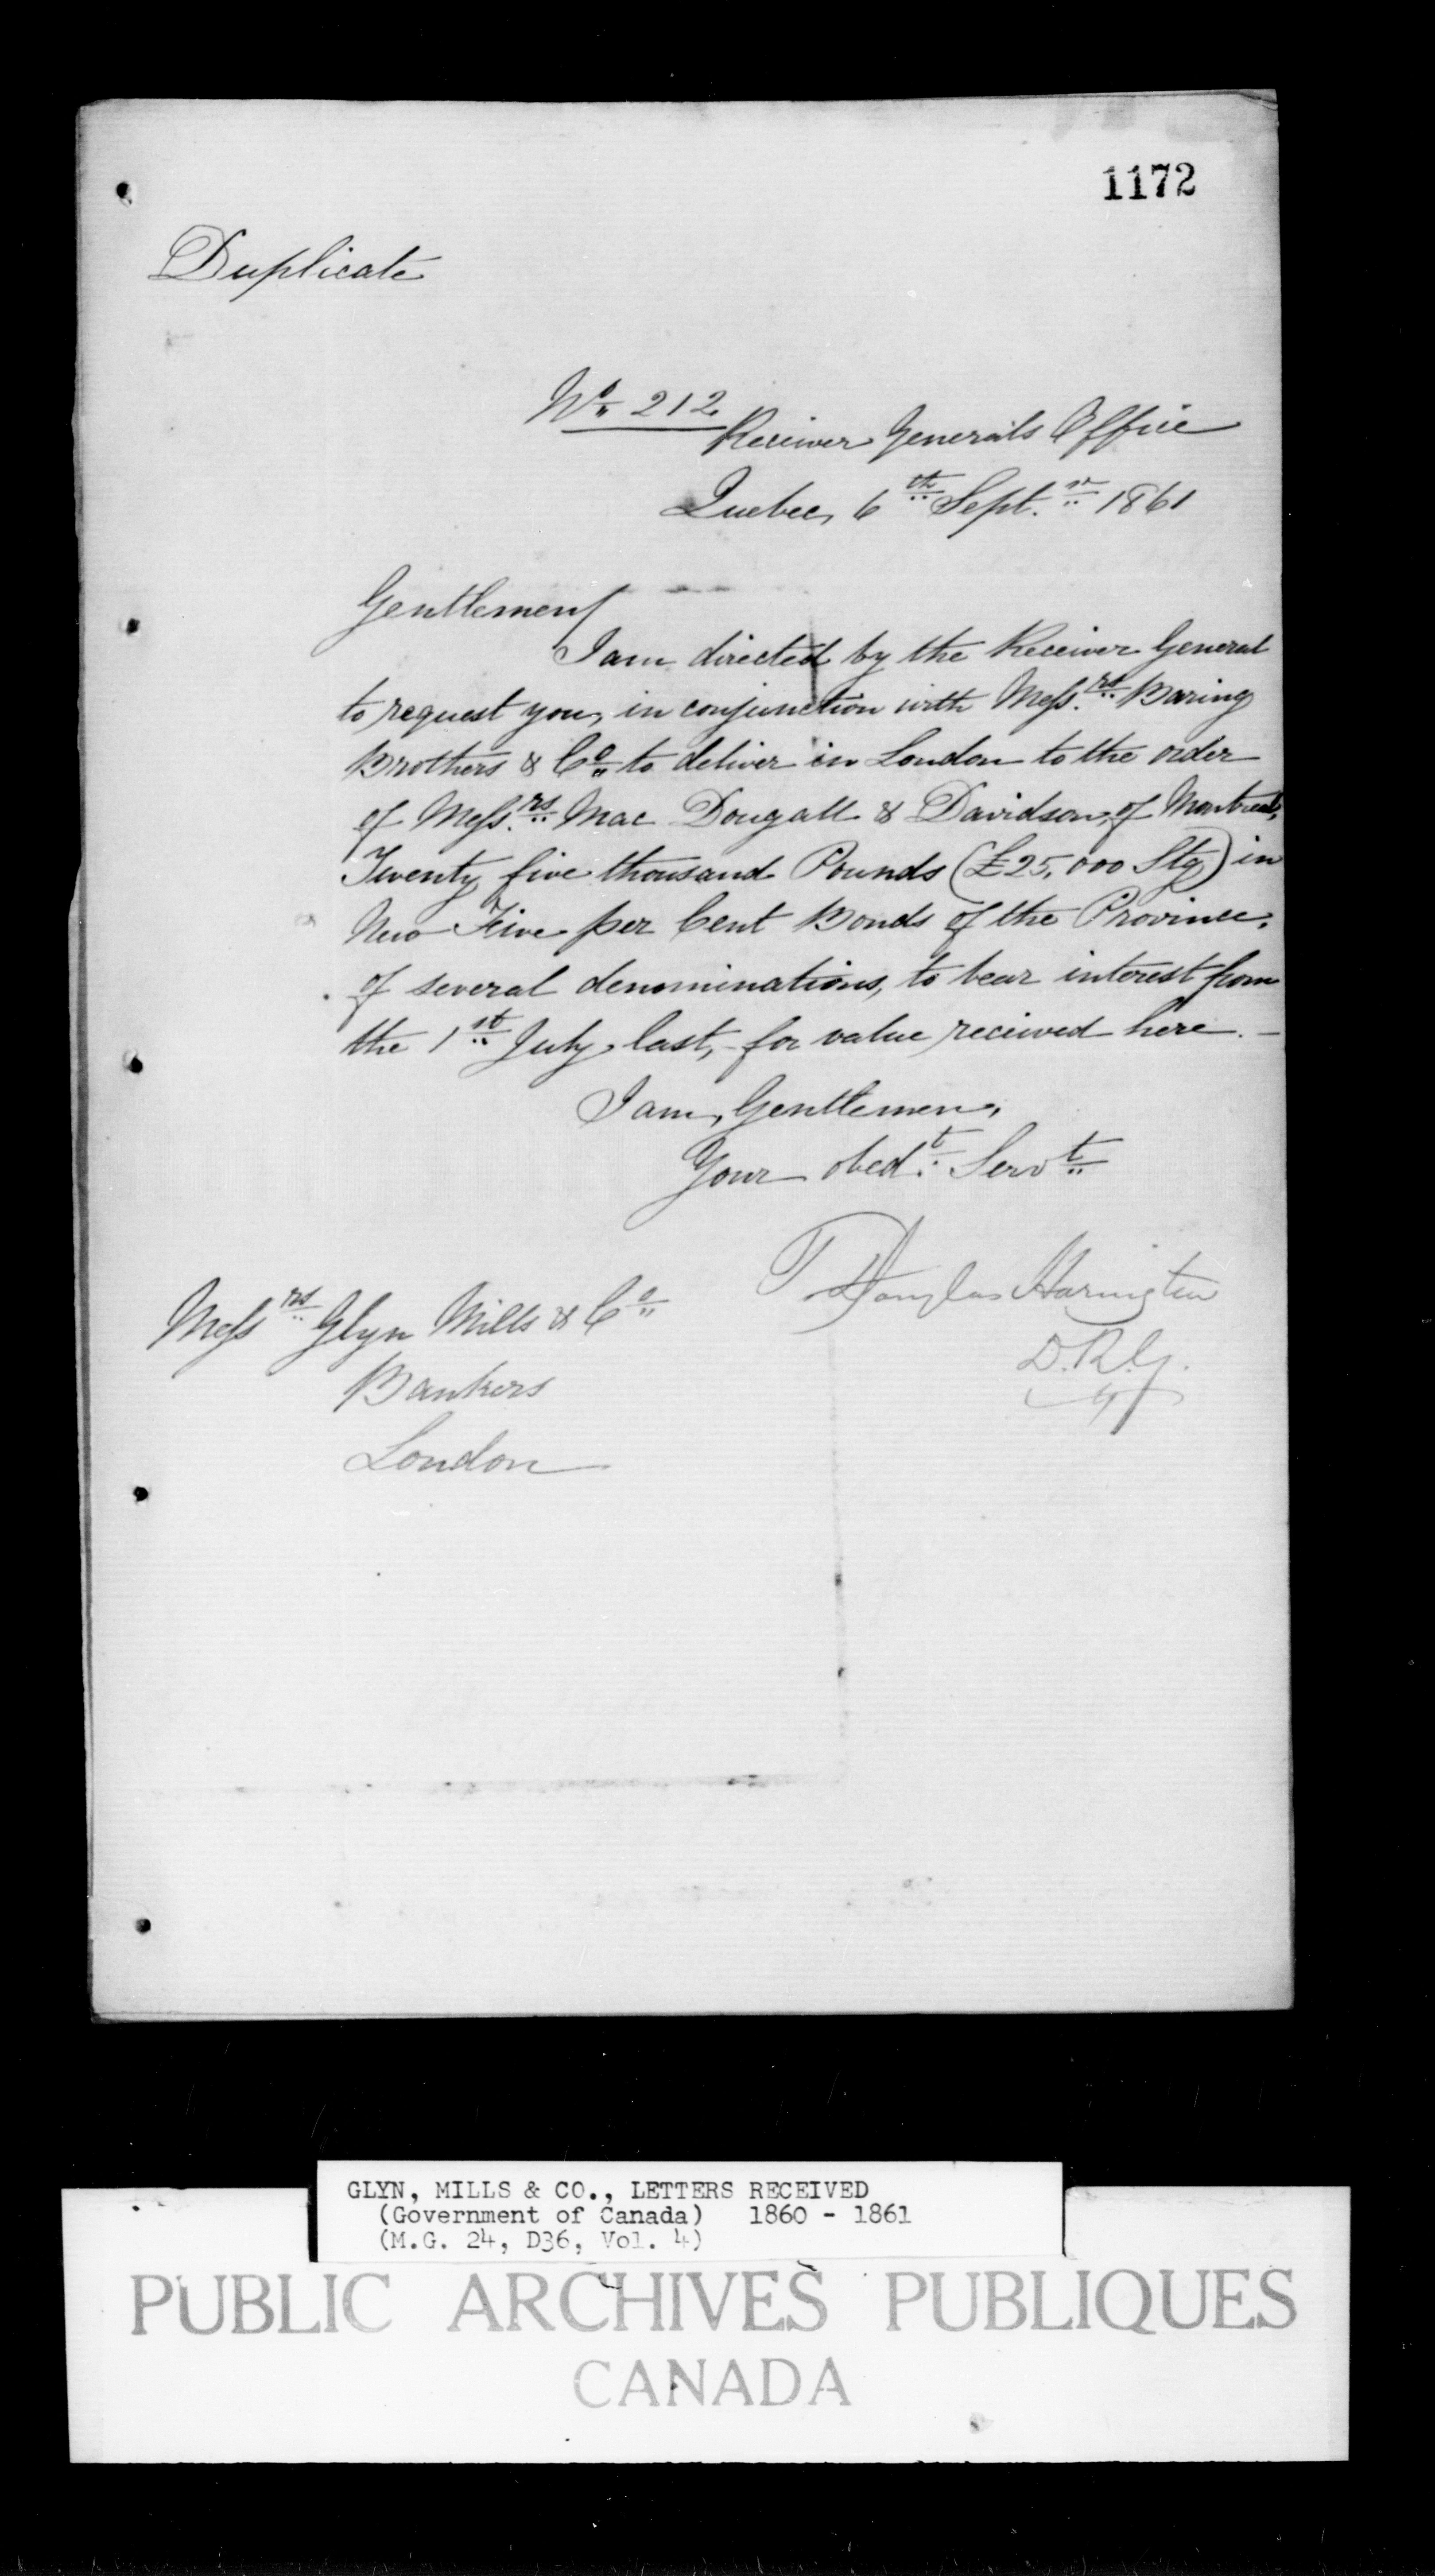 1172
Duplicate
No 212
Receiver Generals Office
Quebec, 6th Septr 1861
Gentlemen
I am directed by the Receiver General
to request you, in conjunction with Messrs Baring
Brothers & Co to deliver in London to the order
of Messrs Mac Dougall & Davidson, of Montreal,
Twenty five thousand Pounds (£25,000 Stg) in
New Five per Cent Bonds of the Province,
of several denominations, to bear interest from
the 1st July last, for value received here. —
I am, Gentlemen,
Your obedt Servt
T Douglas Harington
D.R.G.
Messrs Glyn Mills & Co
Bankers
London
GLYN, MILLS & CO., LETTERS RECEIVED
(Government of Canada) 1860 - 1861
(M.G. 24, D36, Vol. 4)
PUBLIC ARCHIVES PUBLIQUES
CANADA